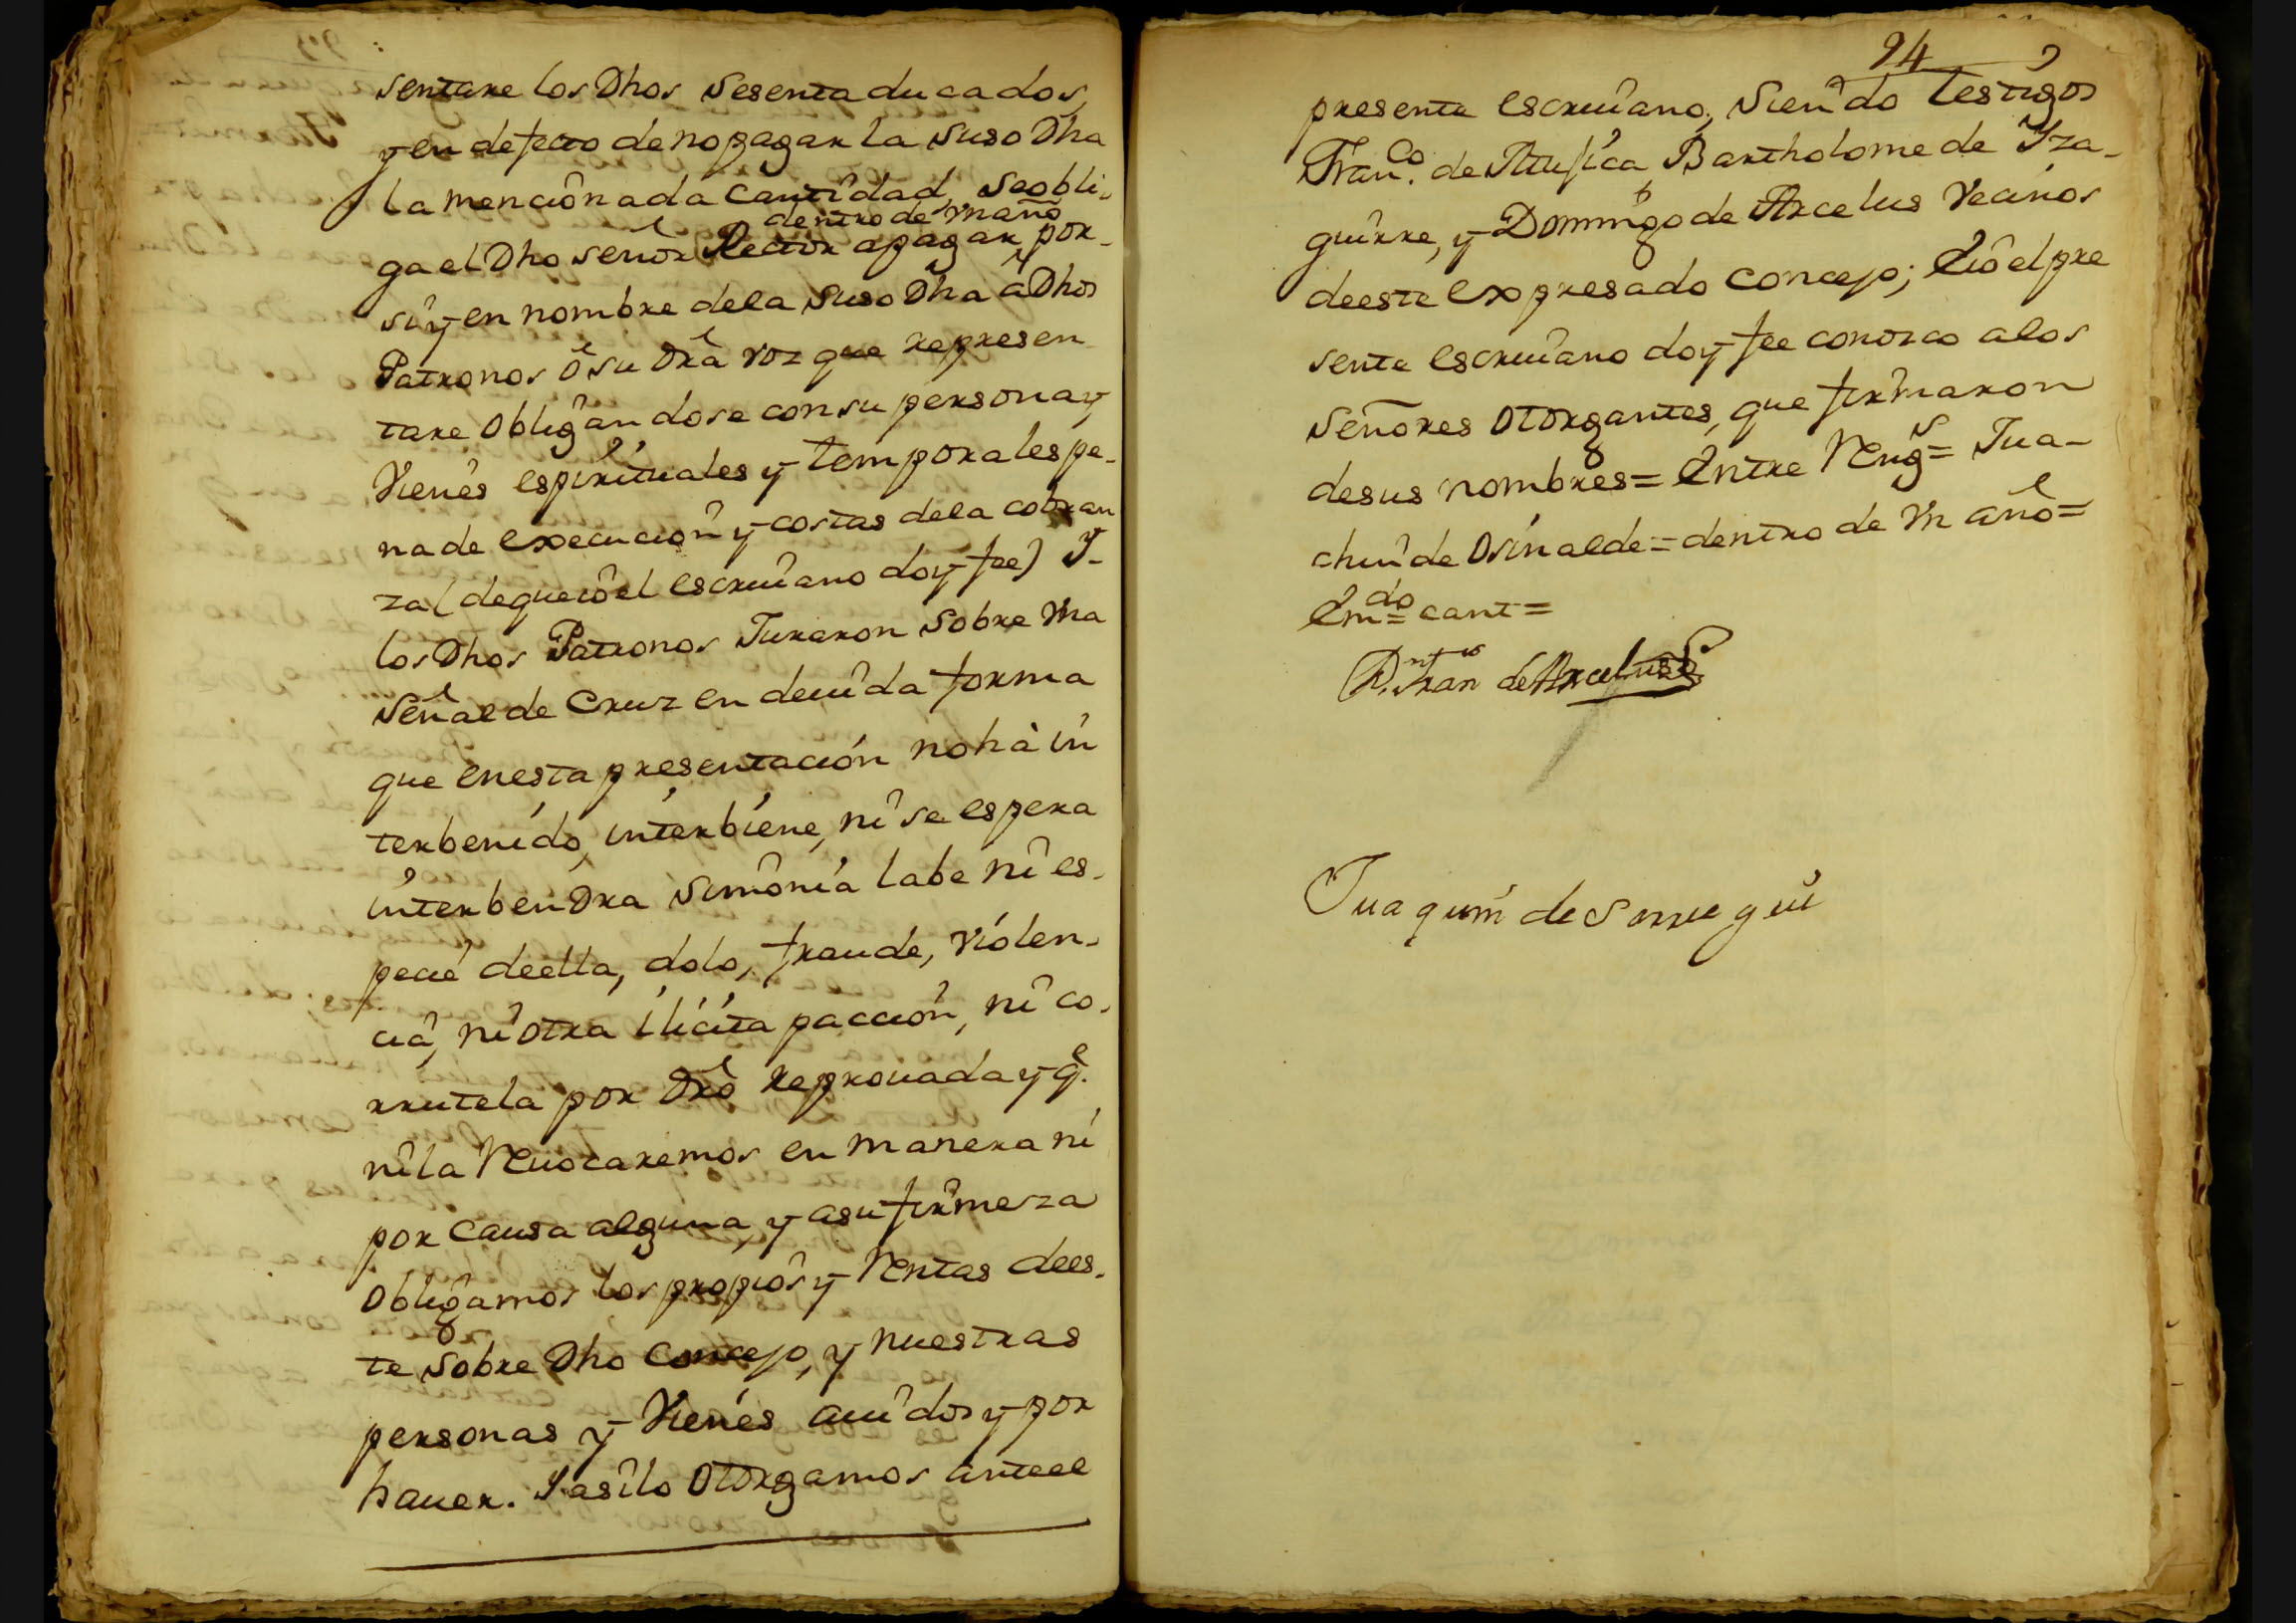 sentare los Dhos Sesenta ducados,
y en defecto de no pagar la suso Dha
la mencionada cantidad, se obli-
dentro de vn año
ga el Dho señor Rector a pagar, por
si y en nombre de la suso Dha à Dhos
Patronos ò su Dra voz que represen
tare obligandose con su persona y
Vienes espirituales y temporales pe-
na de execucion y costas de la cobran
za (de que io el escriuano doy fee) Y
los Dhos Patronos Juraron sobre vna
señal de Cruz en deuida forma
que en esta presentación no hà in
terbenido, interbiene, ni se espera
interbendra Simonia labe ni es-
pecie de ella, dolo, fraude, violen-
cia, ni otra ilicita paccion, ni co-
rrutela por Dro reprouada y q.e
ni la Reuocaremos en manera ni
por causa alguna, y a su firmesza
obligamos los propios y Rentas de es-
te sobre Dho Concejo, y nuestras
personas y Vienes auidos y por
hauer. Y asi lo otorgamos ante el
94
presente escriuano, siendo testigos
Fran.co de Bartholome de Yza-
guirre, y Domingo de Arcelus vecinos
de este expresado concejo; è io el pre
sente escriuano doy fee conozco a los
señores otorgantes, que firmaron
de sus nombres = Entre Reng.s = Jua-
chin de Osinalde = dentro de vn año =
Em.do = cant =
de Arcelus
Juaquin de